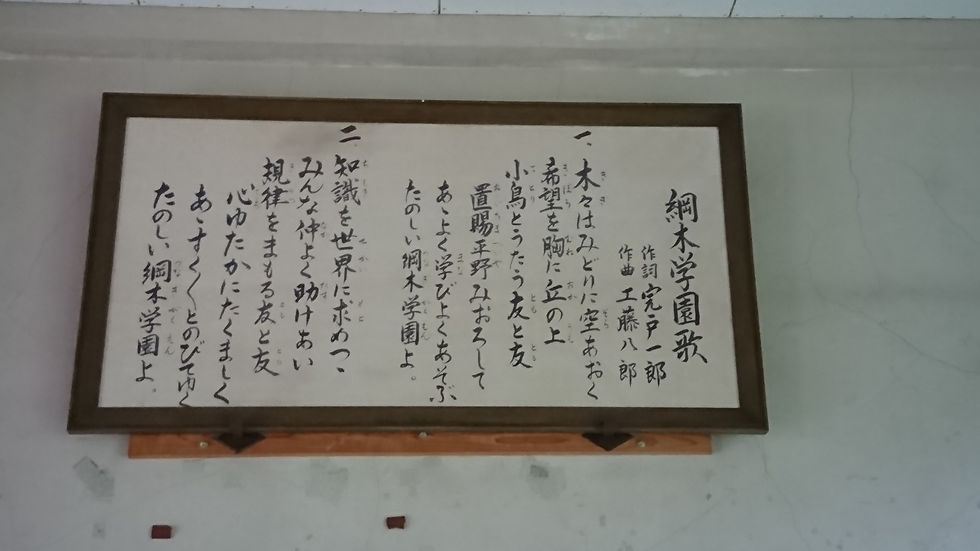 綱木学園歌
作詞 宍戸一郎
作曲 工藤八郎
一、木々はみどりに空あおく
希望を胸に丘の上
小鳥とうたう友と友
置賜平野みおろして
あゝよく学びよくあそぶ
たのしい綱木学園よ。
二、知識を世界に求めつゝ
みんな仲よく助けあい
規律をまもる友と友
心ゆたかにたくましく
あゝすく〱とのびてゆく
たのしい綱木学園よ。